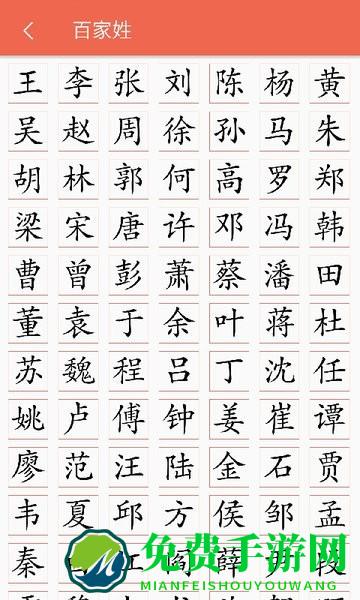 百家姓
王 李 张 刘 陈 杨 黄
吴 赵 周 徐 孙 马 朱
胡 林 郭 何 高 罗 郑
梁 宋 唐 许 邓 冯 韩
曹 曾 彭 萧 蔡 潘 田
董 袁 于 余 叶 蒋 杜
苏 魏 程 吕 丁 沈 任
姚 卢 傅 钟 姜 崔 谭
廖 范 汪 陆 金 石 贾
韦 夏 邱 方 侯 邹 孟
秦 江 阎 薛 段
免费手游网
MIANFEISHOUYOUWANG